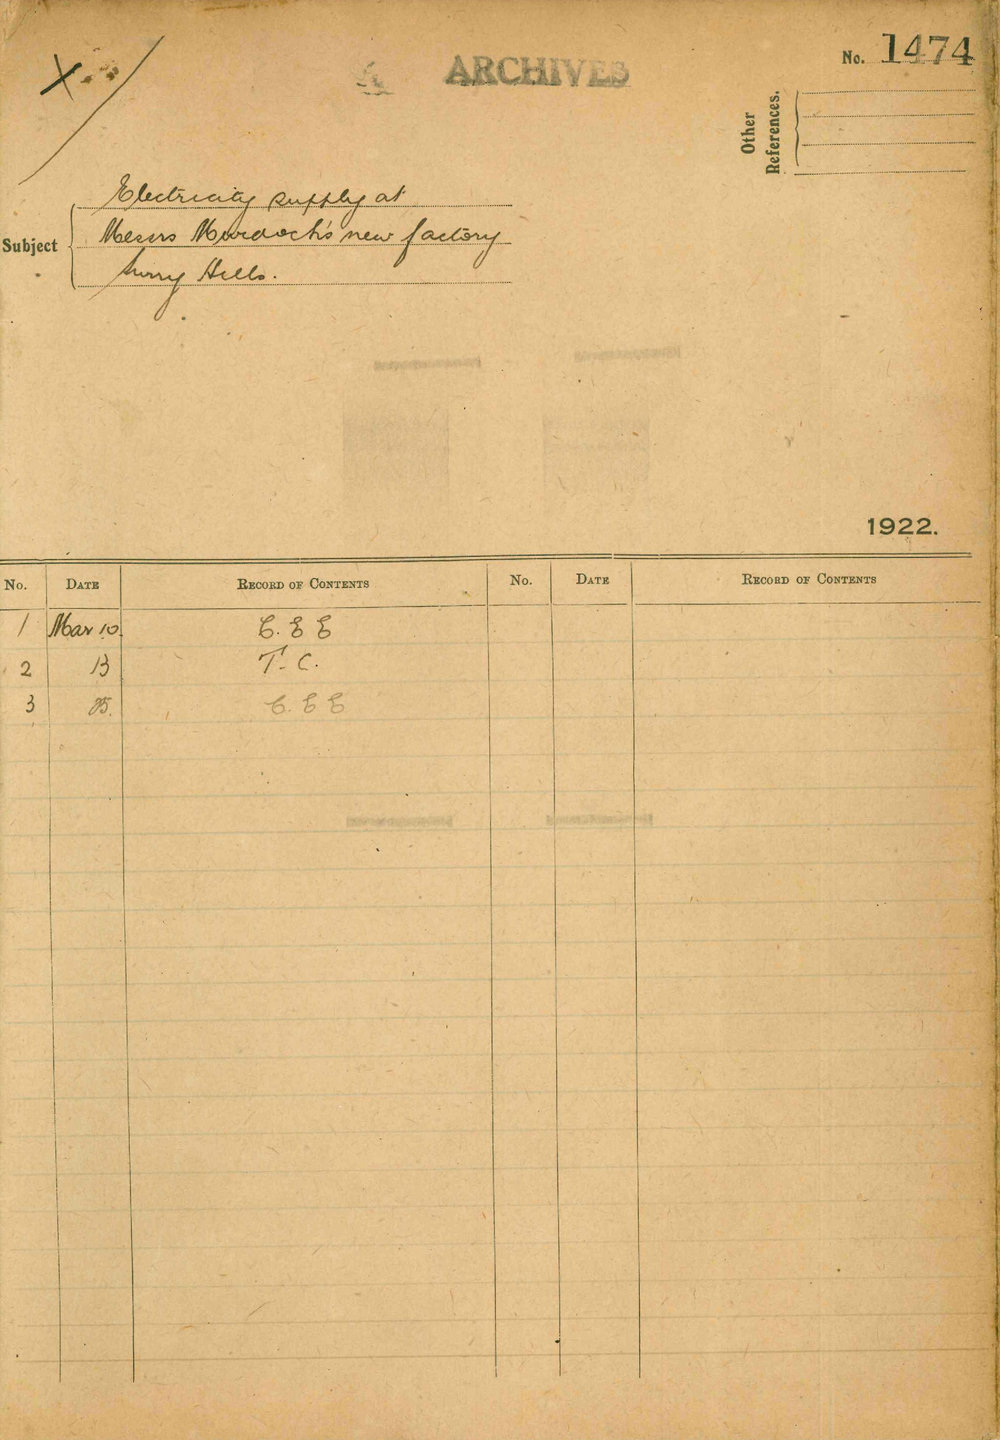 ARCHIVES
No. 1474
Other
References.
Subject
Electricity supply at
Messrs Murdoch's new factory
Surry Hills.
1922.
No. DATE RECORD OF CONTENTS No. DATE RECORD OF CONTENTS
1 Mar 10. C. E E
2 13 T. C.
3 C. E E